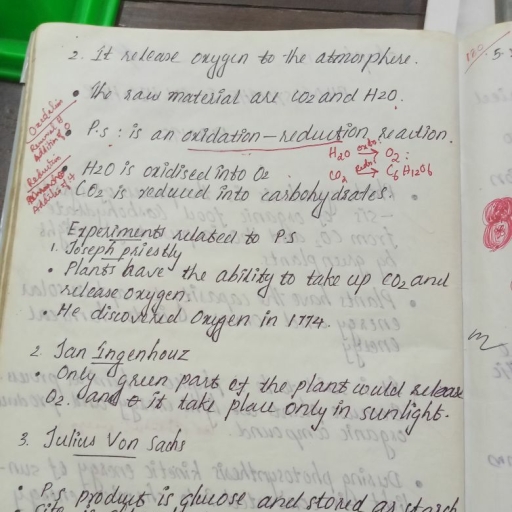 2. It release oxygen to the atmosphere.
• The raw material are CO2 and H2O.
• P.s : is an oxidation-reduction reaction.
Oxidation
Removal H
Addition O
H2O oxdn → O2 :
CO2 redn → C6H12O6
• H2O is oxidised into O2
Reduction
Addition H
• CO2 is reduced into carbohydrates.
Experiments related to P.s
1. Joseph priestly
• Plants have the ability to take up CO2 and
release oxygen.
• He discovered Oxygen in 1774.
2. Jan Ingenhouz
• Only green part of the plant could release
O2. and it take place only in sunlight.
3. Julius Von Sachs
• P.s product is glucose and stored as starch